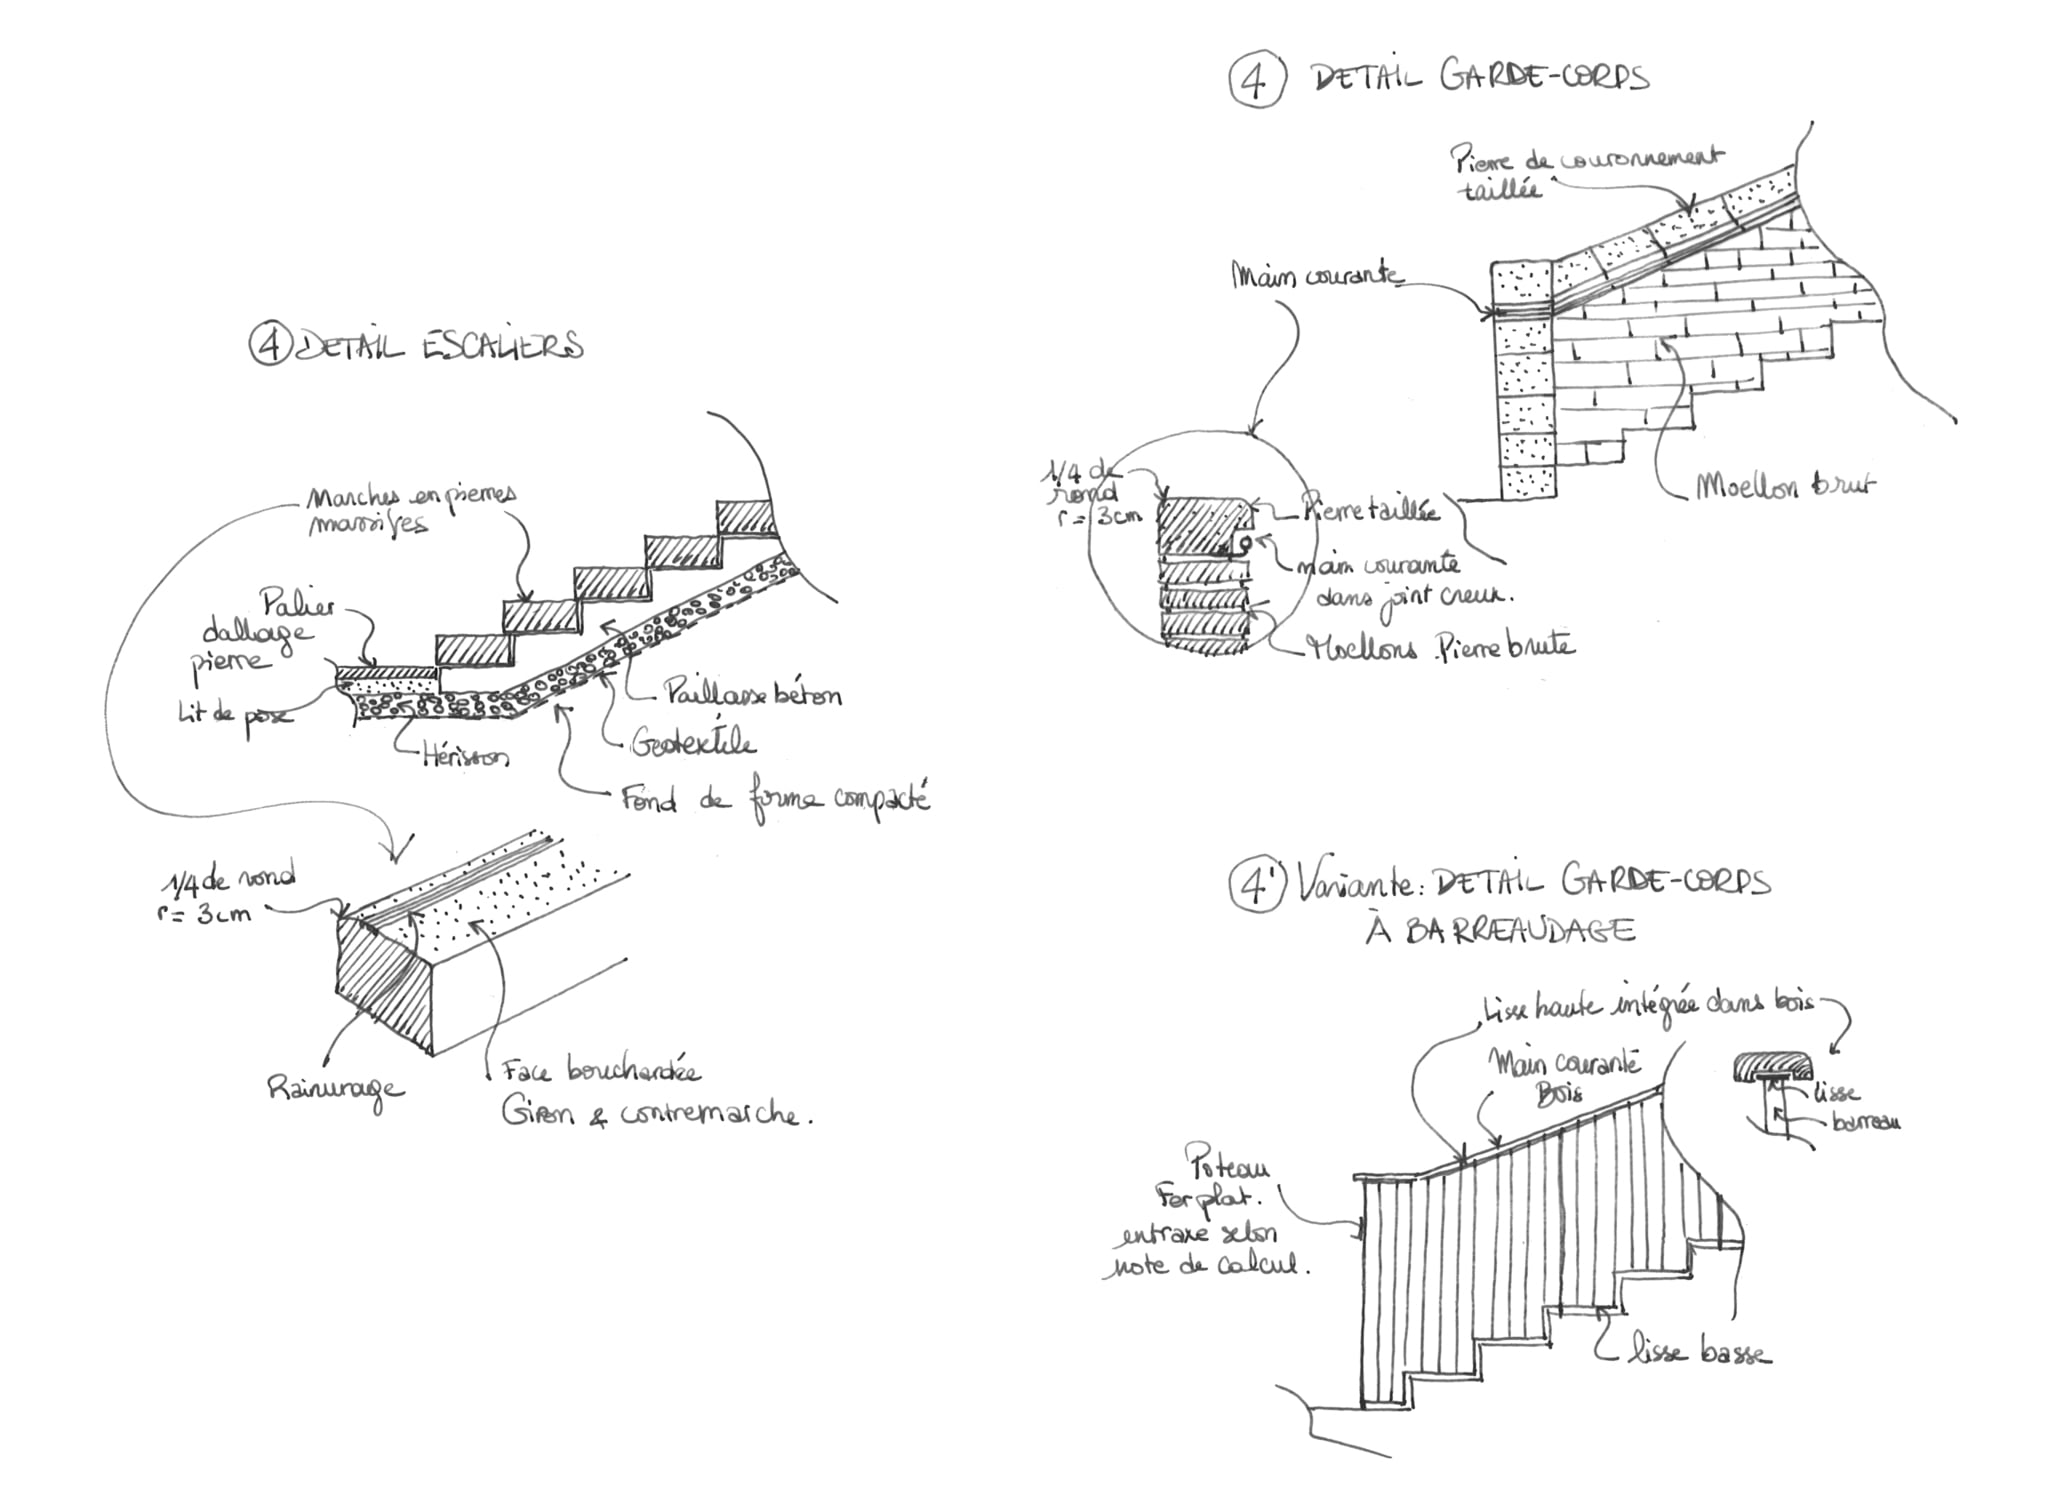 4 DETAIL ESCALIERS
Marches en pierres
massives
Palier
dallage
pierre
Lit de pose
Hérisson
Paillasse béton
Geotextile
Fond de forme compacté
1/4 de rond
r = 3cm
Rainurage
Face bouchardée
Giron & contremarche.
4 DETAIL GARDE-CORPS
Pierre de couronnement
taillée
Main courante
1/4 de
rond
r = 3cm
Pierre taillée
main courante
dans joint creux.
Moellons Pierre brute
Moellon brut
4' Variante: DETAIL GARDE-CORPS
À BARREAUDAGE
Lisse haute intégrée dans bois
Main courante
Bois
lisse
barreau
Poteau
Fer plat.
entraxe selon
note de calcul.
lisse basse